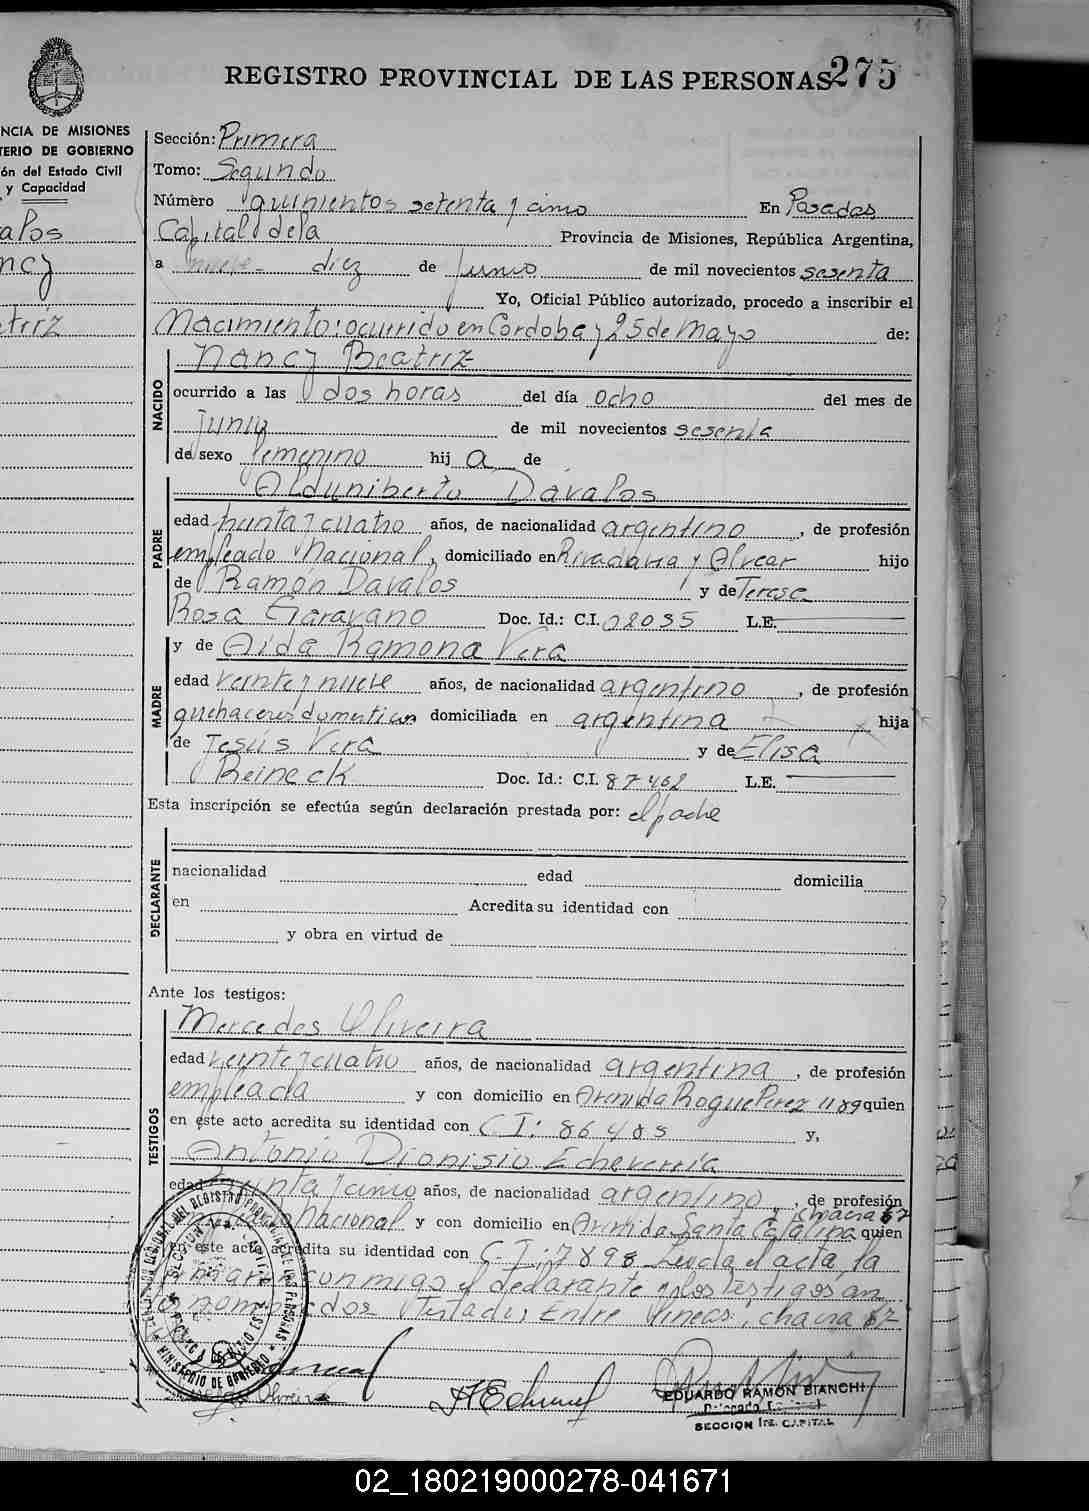 REGISTRO PROVINCIAL DE LAS PERSONAS 275
NCIA DE MISIONES
TERIO DE GOBIERNO
ón del Estado Civil
y Capacidad
alos
ncy
atriz
Sección: Primera
Tomo: Segundo
Número quinientos setenta y cinco En Posadas
Capital dela Provincia de Misiones, República Argentina,
a nueve diez de Junio de mil novecientos sesenta
Yo, Oficial Público autorizado, procedo a inscribir el
Nacimiento: ocurrido en Cordoba y 25 de Mayo de:
NACIDO
Nancy Beatriz
ocurrido a las dos horas del día ocho del mes de
Junio de mil novecientos sesenta
de sexo femenino hij a de
PADRE
Alduniberto Davalos
edad treinta y cuatro años, de nacionalidad argentino, de profesión
empleado Nacional, domiciliado en Rivadavia y Alvear hijo
de Ramón Davalos y de Teresa
Rosa Garavano Doc. Id.: C.I. 02035 L.E.
MADRE
y de Aida Ramona Vera
edad veinte y nueve años, de nacionalidad argentino, de profesión
quehaceres domesticos domiciliada en argentina hija
de Jesús Vera y de Elisa
Reineck Doc. Id.: C.I. 87462 L.E.
Esta inscripción se efectúa según declaración prestada por: el padre
DECLARANTE
nacionalidad edad domicilia
en Acredita su identidad con
y obra en virtud de
Ante los testigos:
TESTIGOS
Mercedes Oliveira
edad veinte y cuatro años, de nacionalidad argentina, de profesión
empleada y con domicilio en Avenida Roque Perez 1189 quien
en este acto acredita su identidad con CI: 86485 y,
Antonio Dionisio Echeverría
edad treinta y cinco años, de nacionalidad argentino, de profesión
y chacra 67
Nacional y con domicilio en Avenida Santa Catalina quien
en este acto acredita su identidad con C.I: 7898 Leida el acta la
firmaron conmigo el declarante y los testigos an
tes nombrados Testado; Entre lineas; chacra 67
EDUARDO RAMON BIANCHI
Delegado
SECCION 1ra. CAPITAL
02_180219000278-041671